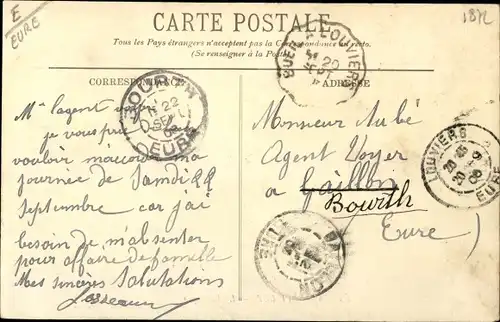 E
EURE
1872
CARTE POSTALE
Tous les Pays étrangers n'acceptent pas la Correspondance au recto.
(Se renseigner à la Poste)
CORRESPONDANCE
ADRESSE
BUEIL A LOUVIERS
20
SEPT
BOURTH
22
SEPT
EURE
LOUVIERS
20
9
06
EURE
Mr l'agent voyer
je vous prie
vouloir ma
journée de Samdi 22
septembre car j'ai
besoin de m'absenter
pour affaire de famille
Mes sincères Salutations
Monsieur Aubé
Agent Voyer
à Gaillon
Bourth
Eure)
GAILLON